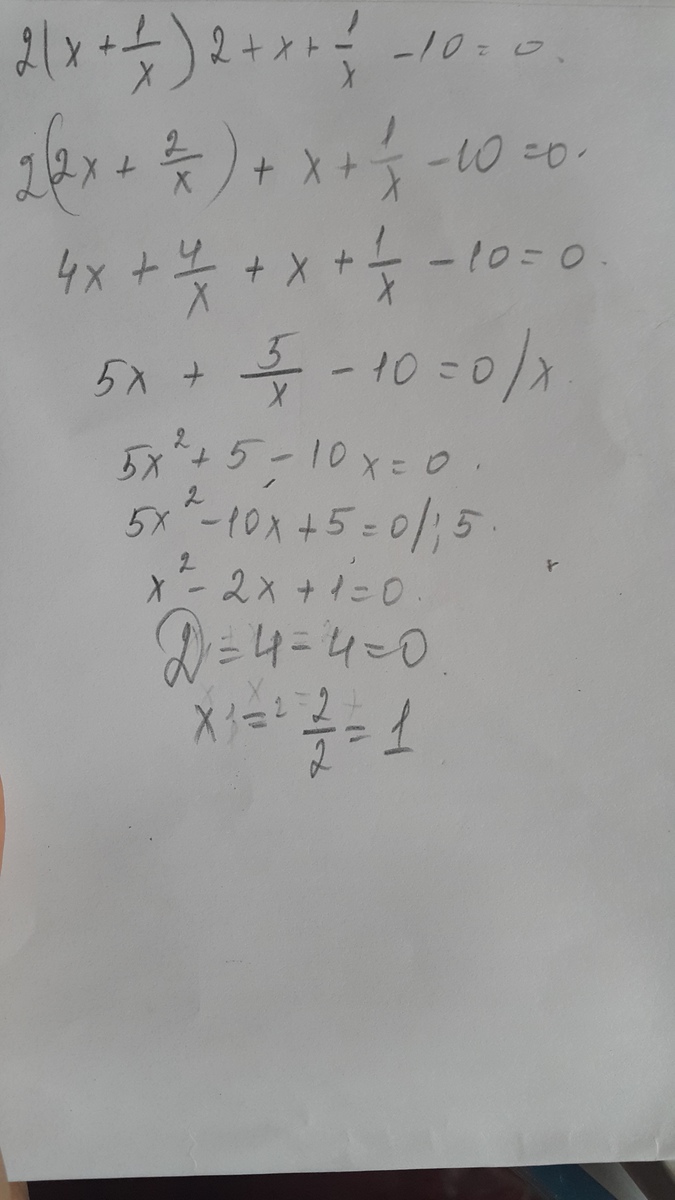 2(x + 1/x) 2 + x + 1/x - 10 = 0.
2(2x + 2/x) + x + 1/x - 10 = 0.
4x + 4/x + x + 1/x - 10 = 0.
5x + 5/x - 10 = 0 / x.
5x² + 5 - 10x = 0.
5x² - 10x + 5 = 0 / : 5.
x² - 2x + 1 = 0.
D = 4 - 4 = 0.
x = 2/2 = 1